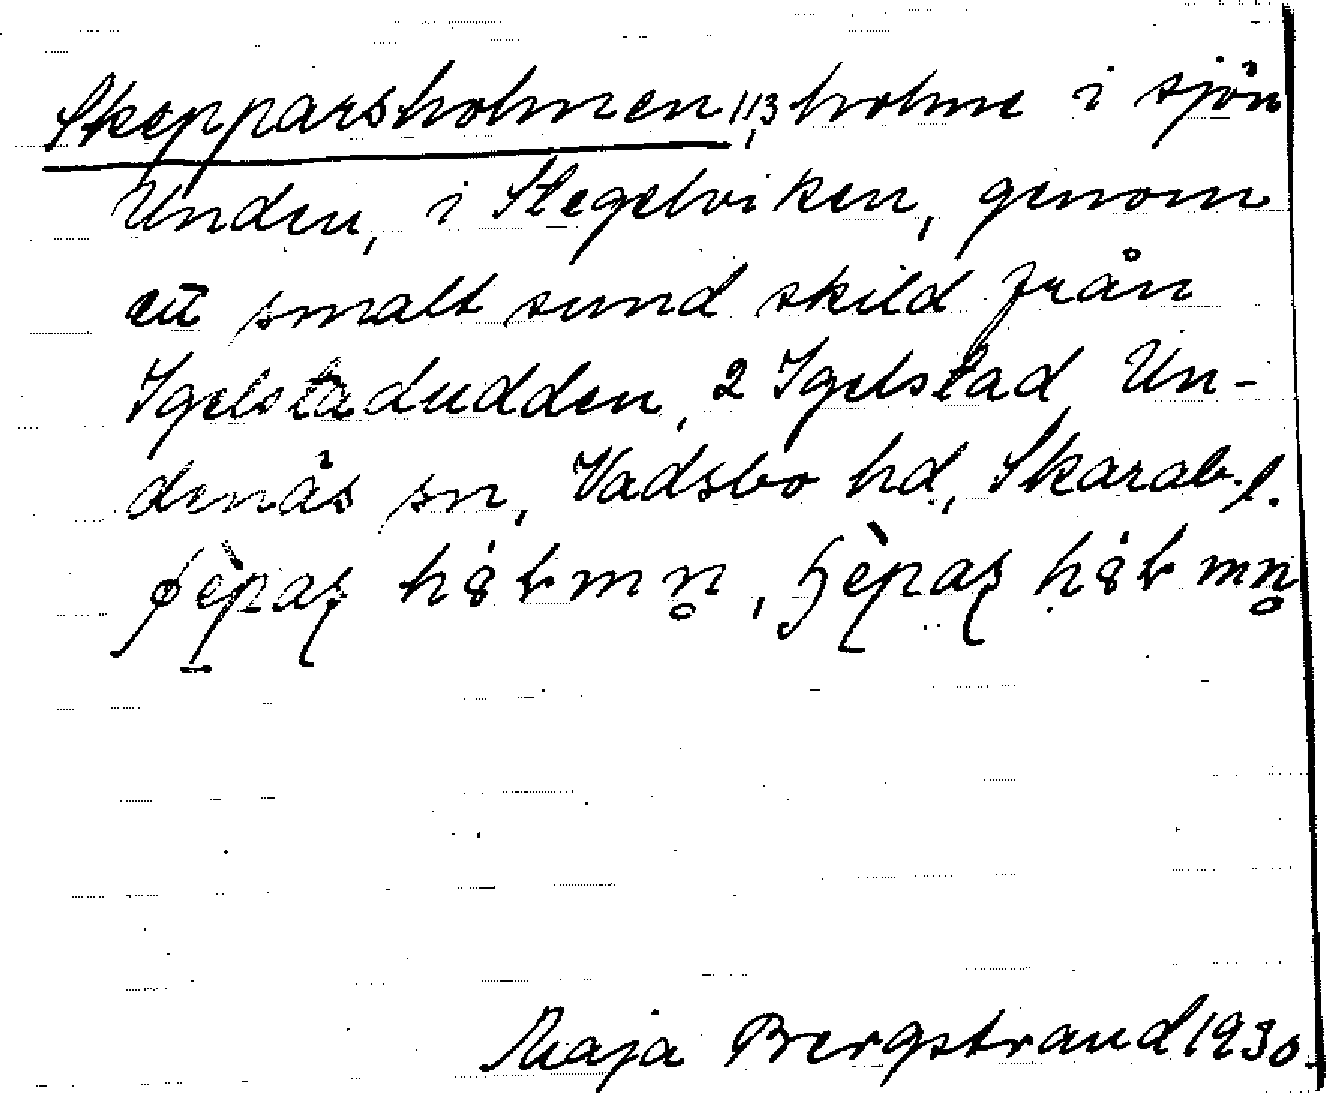 Skepparsholmen, 113 holme i sjön
Unden, i Stegelviken, genom
ett smalt sund skild från
Igelstadudden, 2 Igelstad Un-
denäs sn, Vadsbo hd, Skarab. l.
Maja Bergstrand 1930.